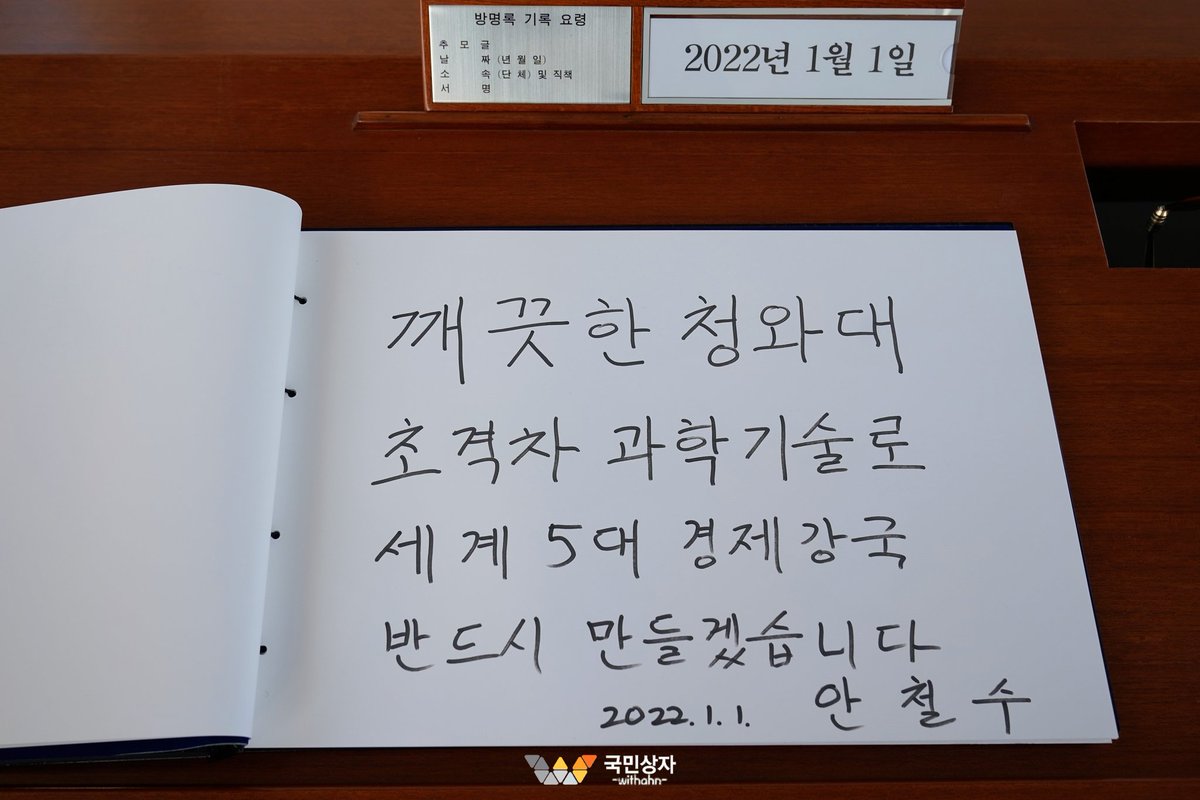 방명록 기록 요령
추 모 글
날 짜 (년 월 일)
소 속 (단 체) 및 직책
서 명
2022년 1월 1일
깨끗한 청와대
초격차 과학기술로
세계 5대 경제강국
반드시 만들겠습니다
2022.1.1. 안철수
국민상자
-withahn-